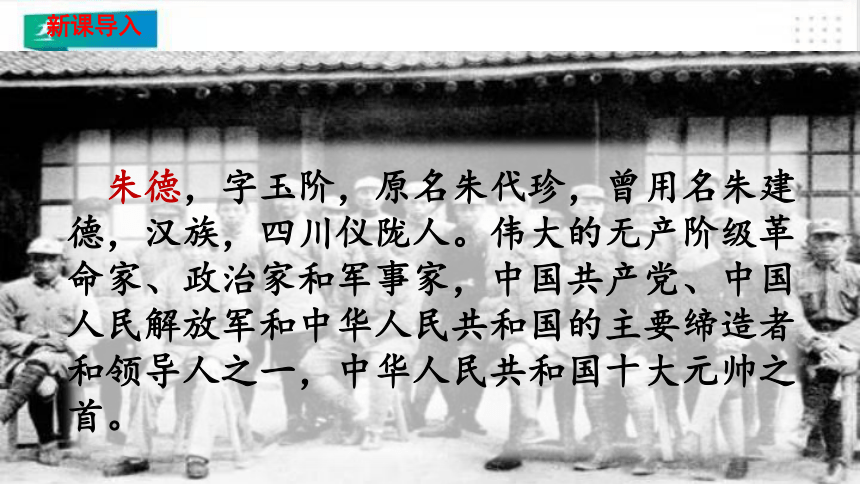 新课导入
朱德，字玉阶，原名朱代珍，曾用名朱建
德，汉族，四川仪陇人。伟大的无产阶级革
命家、政治家和军事家，中国共产党、中国
人民解放军和中华人民共和国的主要缔造者
和领导人之一，中华人民共和国十大元帅之
首。